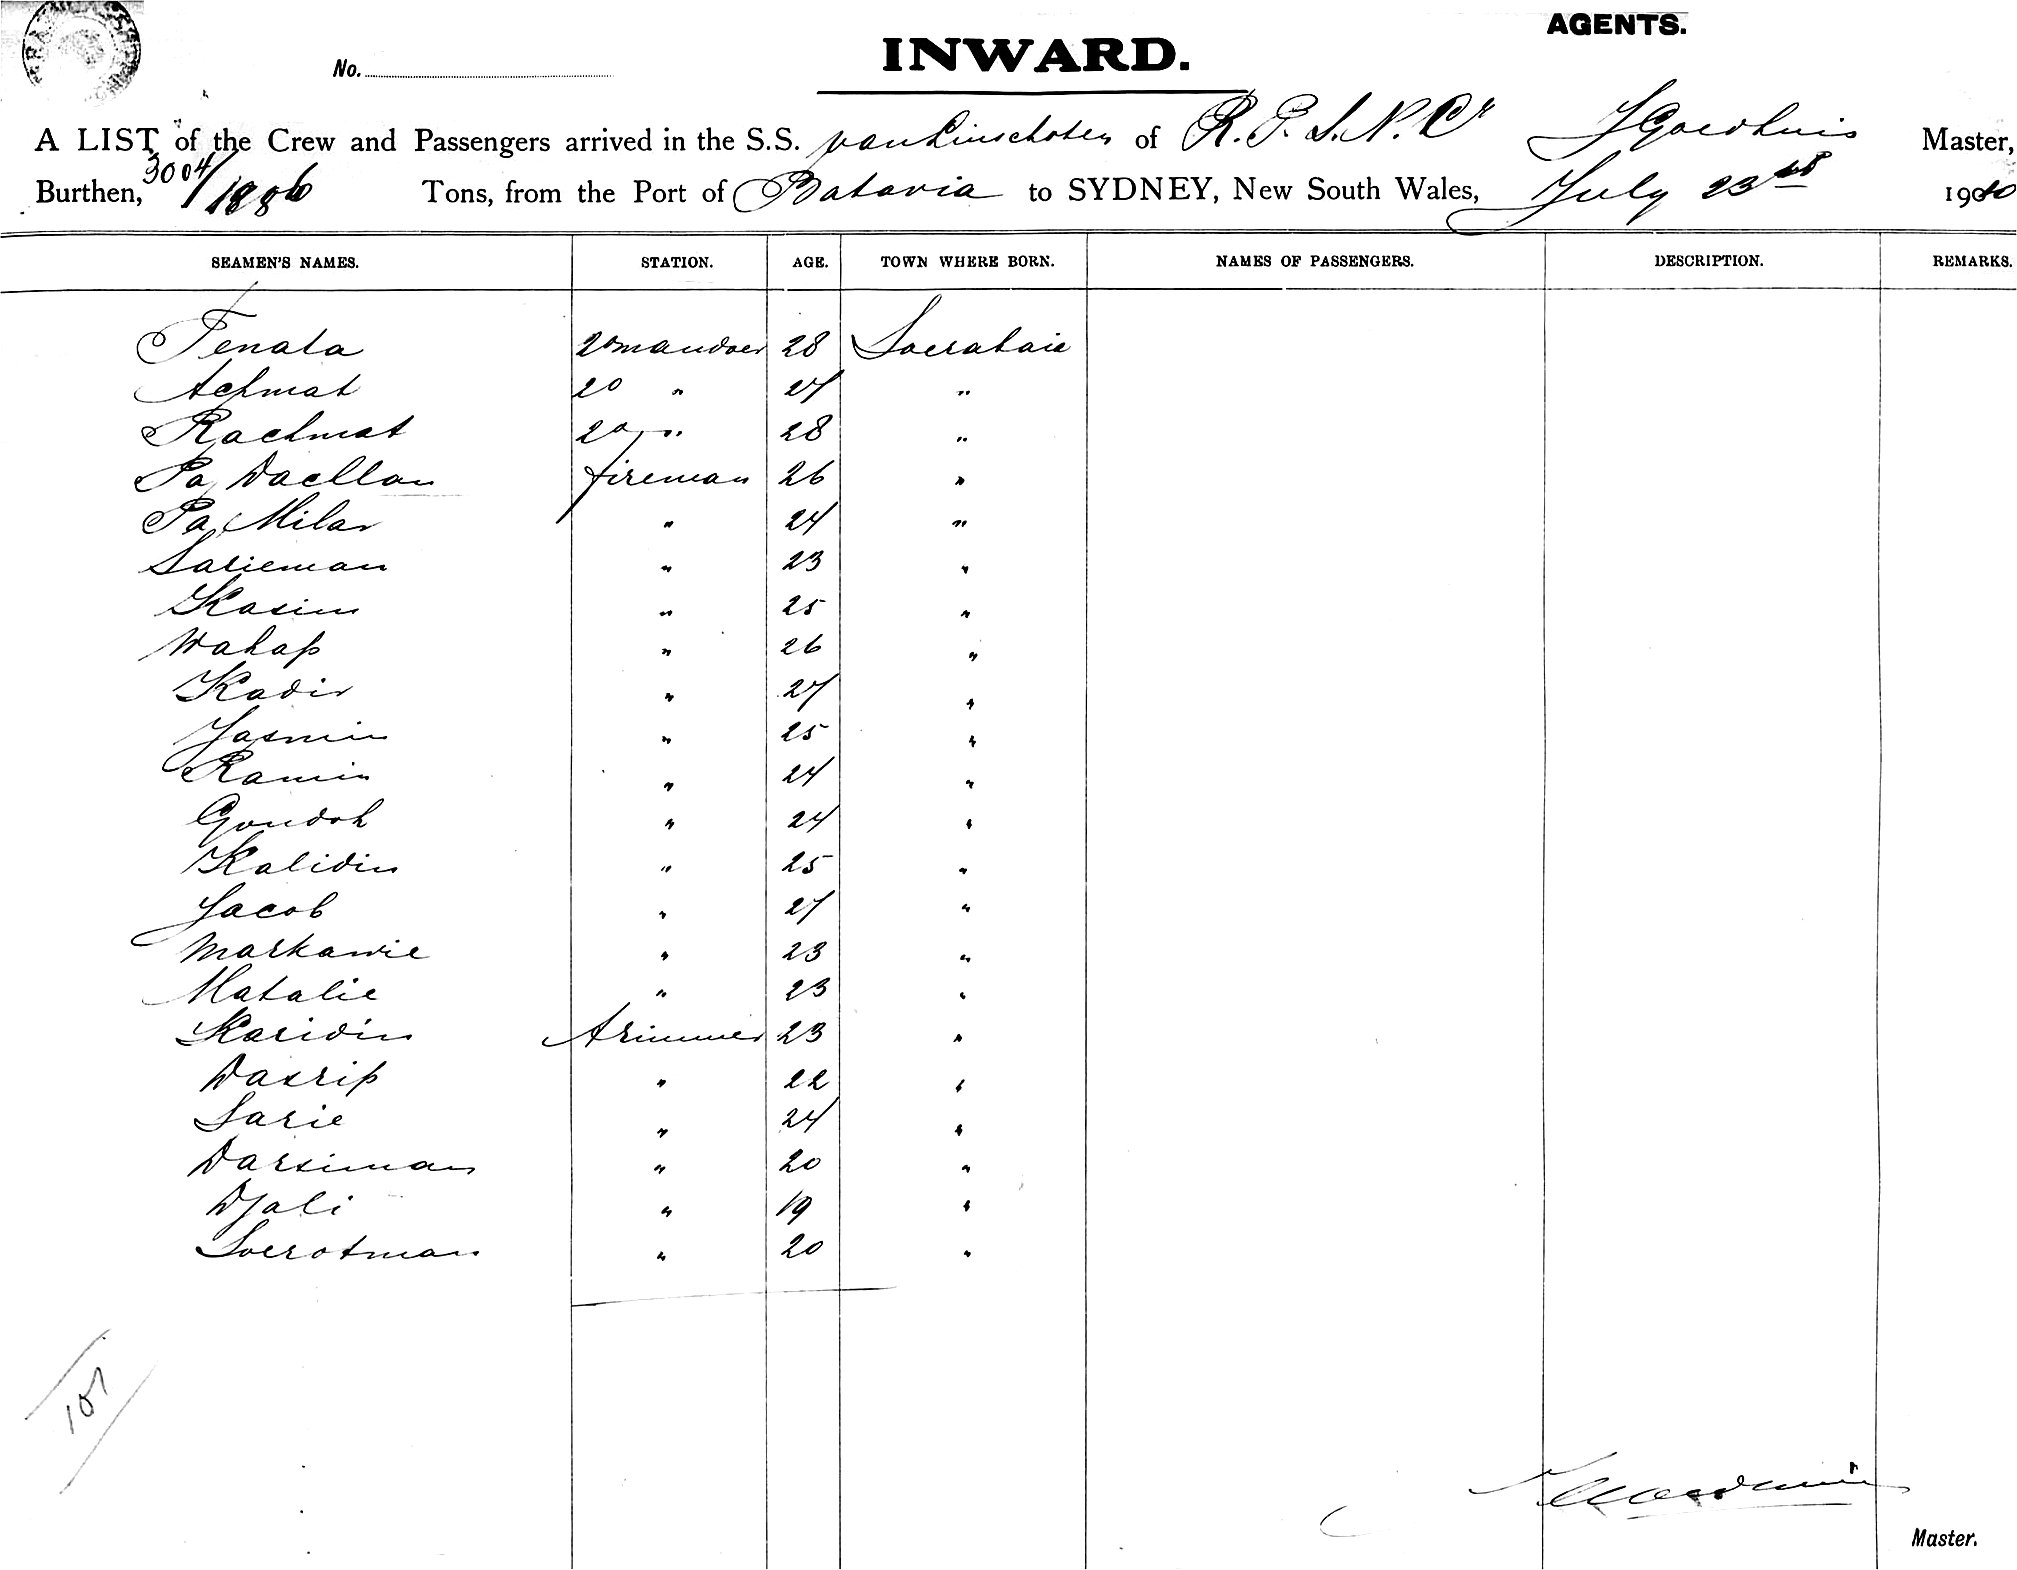 AGENTS.
No. INWARD.
A LIST of the Crew and Passengers arrived in the S.S. van Linschoten of R. P. S. N. Cy J Goedhuis Master,
Burthen, 3004/1886 Tons, from the Port of Batavia to SYDNEY, New South Wales, July 23rd 1910
SEAMEN'S NAMES. STATION. AGE. TOWN WHERE BORN. NAMES OF PASSENGERS. DESCRIPTION. REMARKS.
Tenala 20 mandoer 28 Soerabaia
Achmat 20 " 27 "
Rachmat 20 " 28 "
Pa Daellan fireman 26 "
Pa Milar " 24 "
Sarieman " 23 "
Kasim " 25 "
Wahap " 26 "
Kadir " 27 "
Jasmin " 25 "
Ramin " 24 "
Gondoh " 24 "
Kalidin " 25 "
Jacob " 27 "
Markawie " 23 "
Matalie " 23 "
Karidin trimmer 23 "
Dasrip " 22 "
Sarie " 24 "
Darsiman " 20 "
Djali " 19 "
Soerotman " 20 "
107
Master.